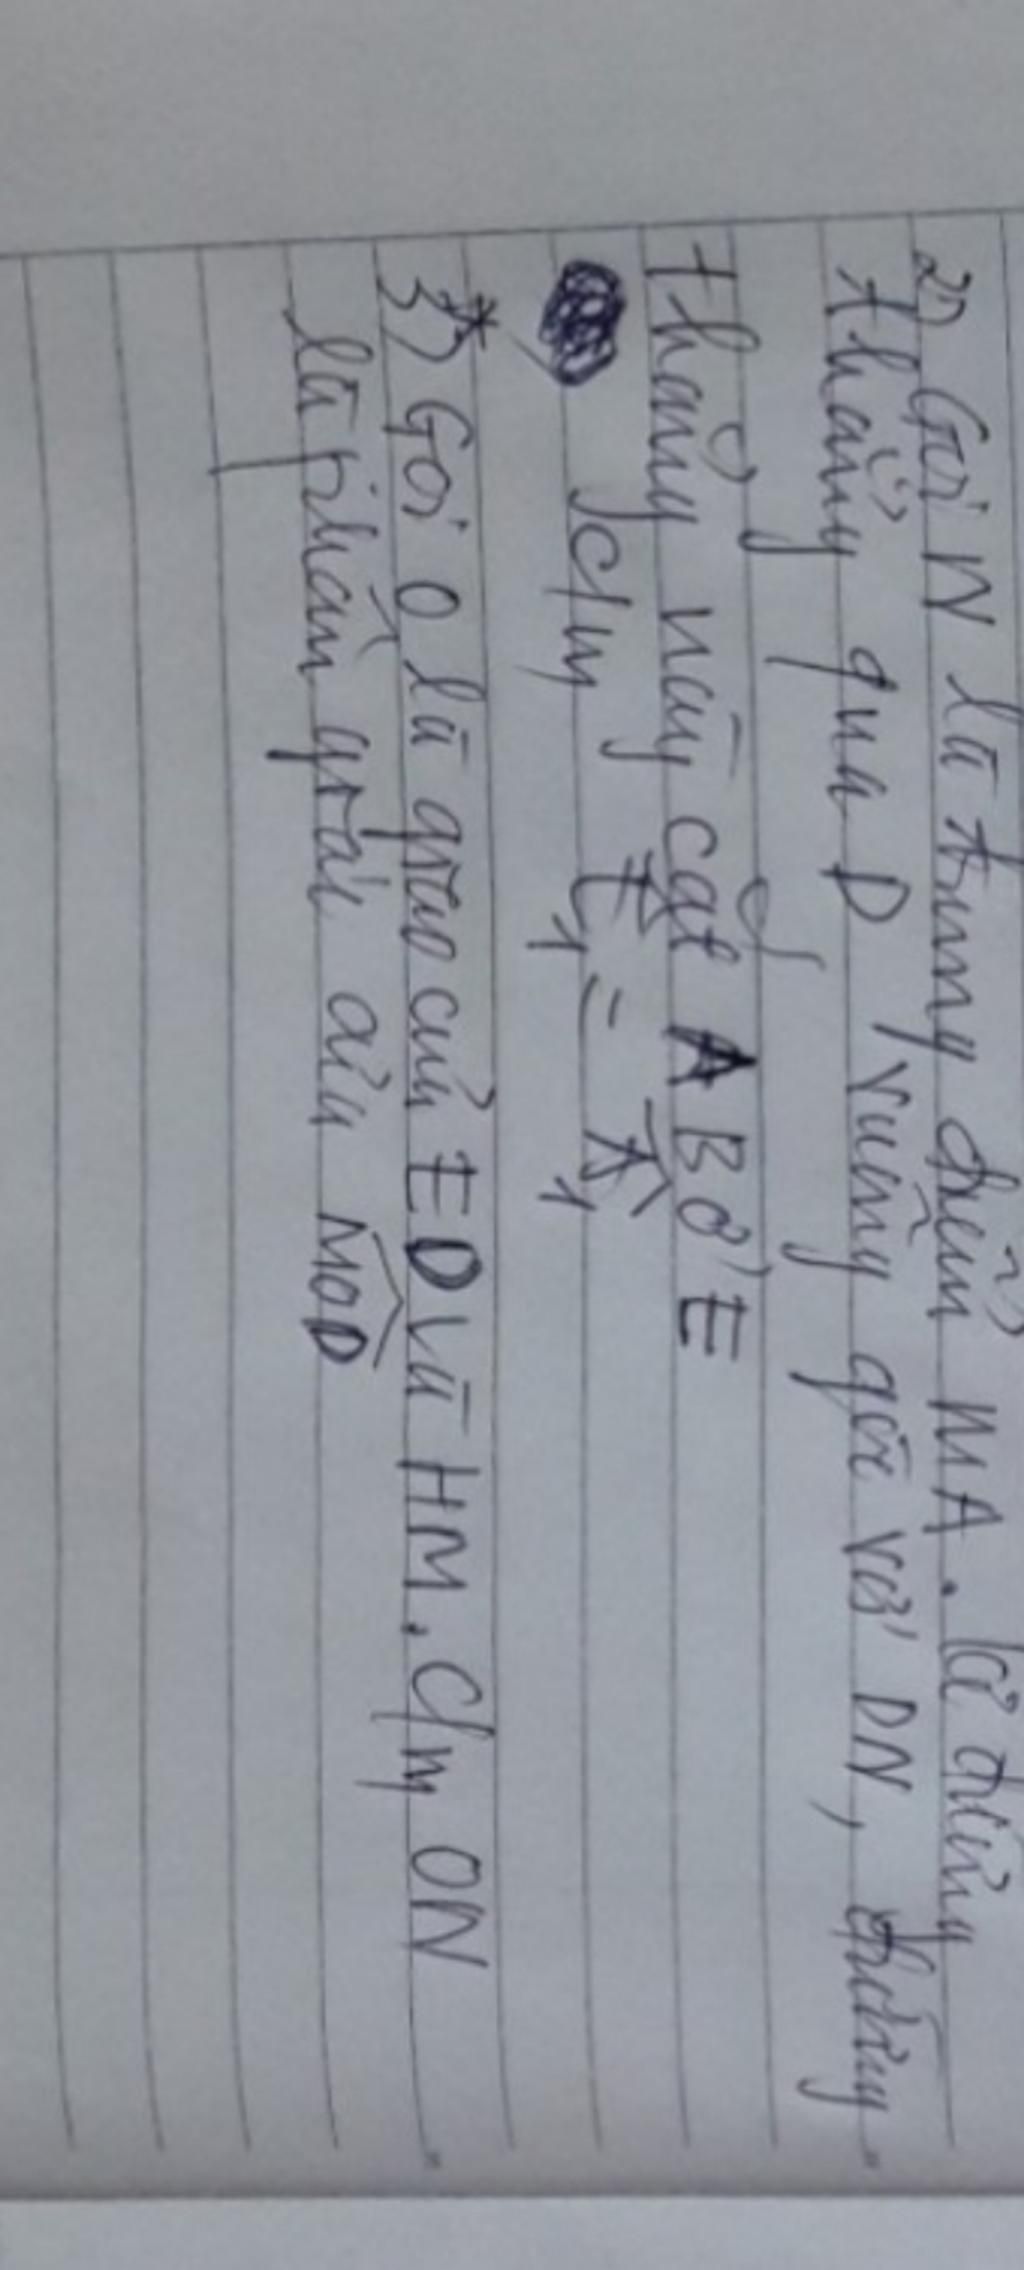 2) Gọi N là trung điểm MA. Từ đường
thẳng qua D vuông góc với DN, đường
thẳng này cắt AB ở E
c/m Ê₁ = Â₁
3) Gọi O là giao của ED và HM. C/m ON
là phân giác của MOD